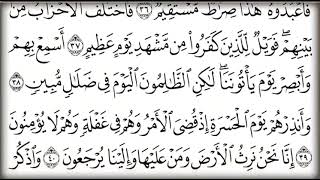 فَٱعۡبُدُوهُۚ هَٰذَا صِرَٰطٞ مُّسۡتَقِيمٞ ٣٦ فَٱخۡتَلَفَ ٱلۡأَحۡزَابُ مِنۢ
بَيۡنِهِمۡۖ فَوَيۡلٞ لِّلَّذِينَ كَفَرُواْ مِن مَّشۡهَدِ يَوۡمٍ عَظِيمٍ ٣٧ أَسۡمِعۡ بِهِمۡ
وَأَبۡصِرۡ يَوۡمَ يَأۡتُونَنَا لَٰكِنِ ٱلظَّٰلِمُونَ ٱلۡيَوۡمَ فِي ضَلَٰلٖ مُّبِينٖ ٣٨
وَأَنذِرۡهُمۡ يَوۡمَ ٱلۡحَسۡرَةِ إِذۡ قُضِيَ ٱلۡأَمۡرُ وَهُمۡ فِي غَفۡلَةٖ وَهُمۡ لَا يُؤۡمِنُونَ
٣٩ إِنَّا نَحۡنُ نَرِثُ ٱلۡأَرۡضَ وَمَنۡ عَلَيۡهَا وَإِلَيۡنَا يُرۡجَعُونَ ٤٠ وَٱذۡكُرۡ